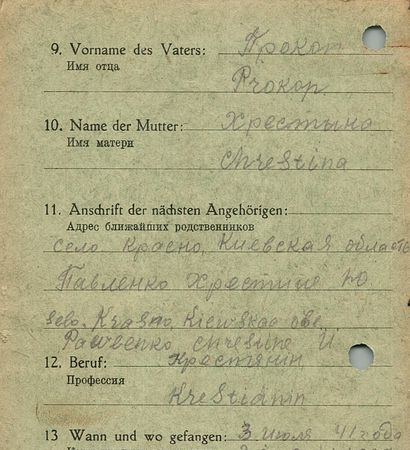 9. Vorname des Vaters: Прокоп
Имя отца
Prokop
10. Name der Mutter: Хрестына
Имя матери
Chrestina
11. Anschrift der nächsten Angehörigen:
Адрес ближайших родственников
село Красно, Киевская область
Павленко Хрестине Ю
selo. Krasno, Kiewskaa
Pawlenko chrestine U
12. Beruf: Крестянин
Профессия
Krestianin
13 Wann und wo gefangen: 3 июля 41 года